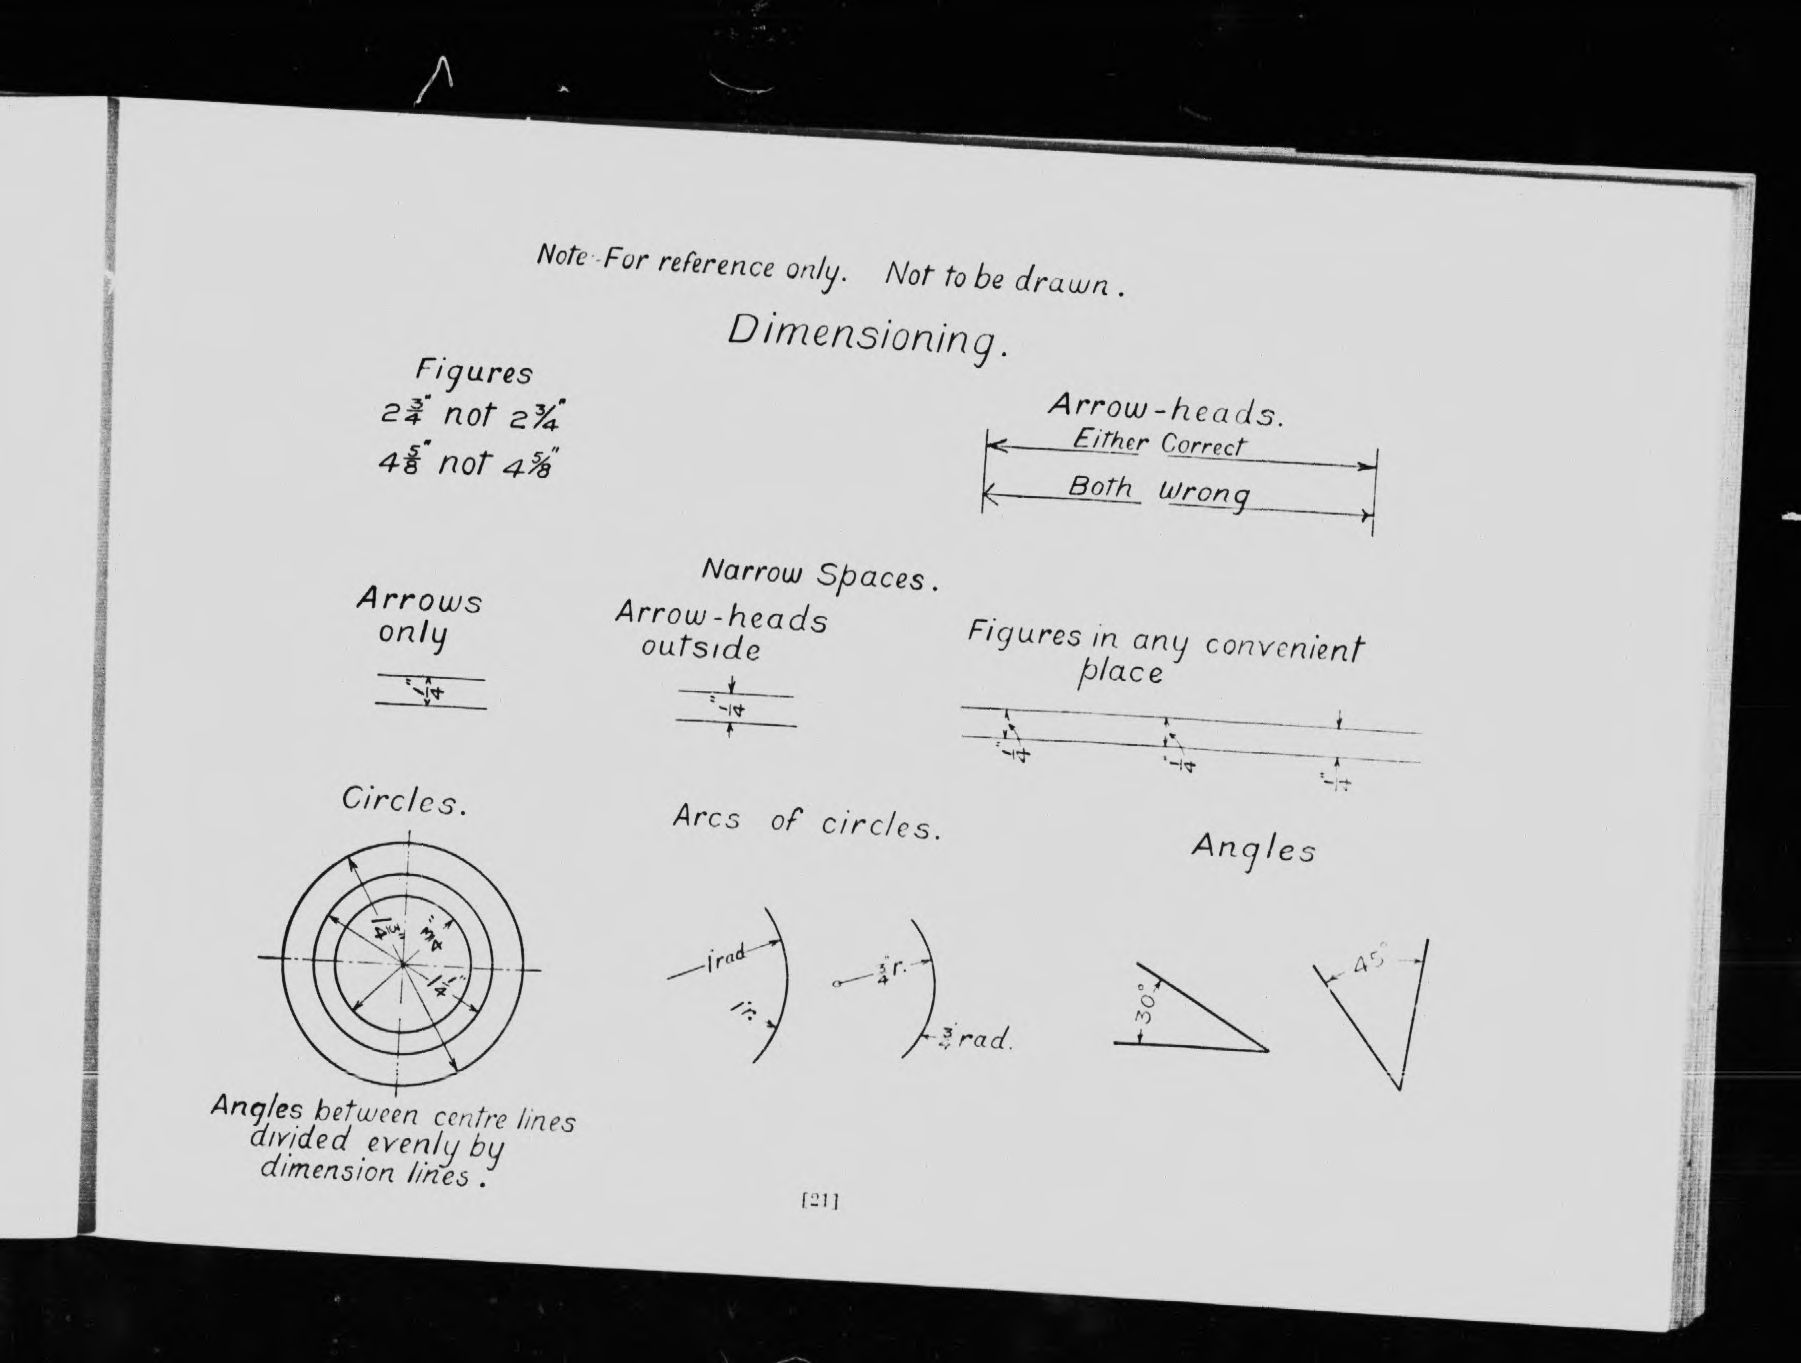 Note-For reference only. Not to be drawn.
Dimensioning.
Figures
2 3/4" not 2 3/4"
4 5/8" not 4 5/8"
Arrow-heads.
Either Correct
Both Wrong
Narrow Spaces.
Arrows
only
1/4"
Arrow-heads
outside
1/4"
Figures in any convenient
place
1/4"
1/4"
1/4"
Circles.
1 3/4"
3/4"
1 1/4"
Angles between centre lines
divided evenly by
dimension lines.
Arcs of circles.
1"rad
1"r.
3/4"r.
3/4"rad.
Angles
30°
45°
[21]